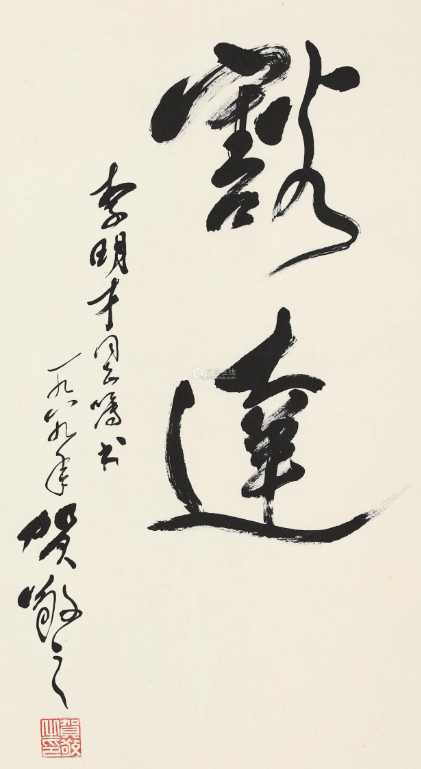 豁達
李明才同志嘱书
一九八九年
贺敬之
贺敬之印